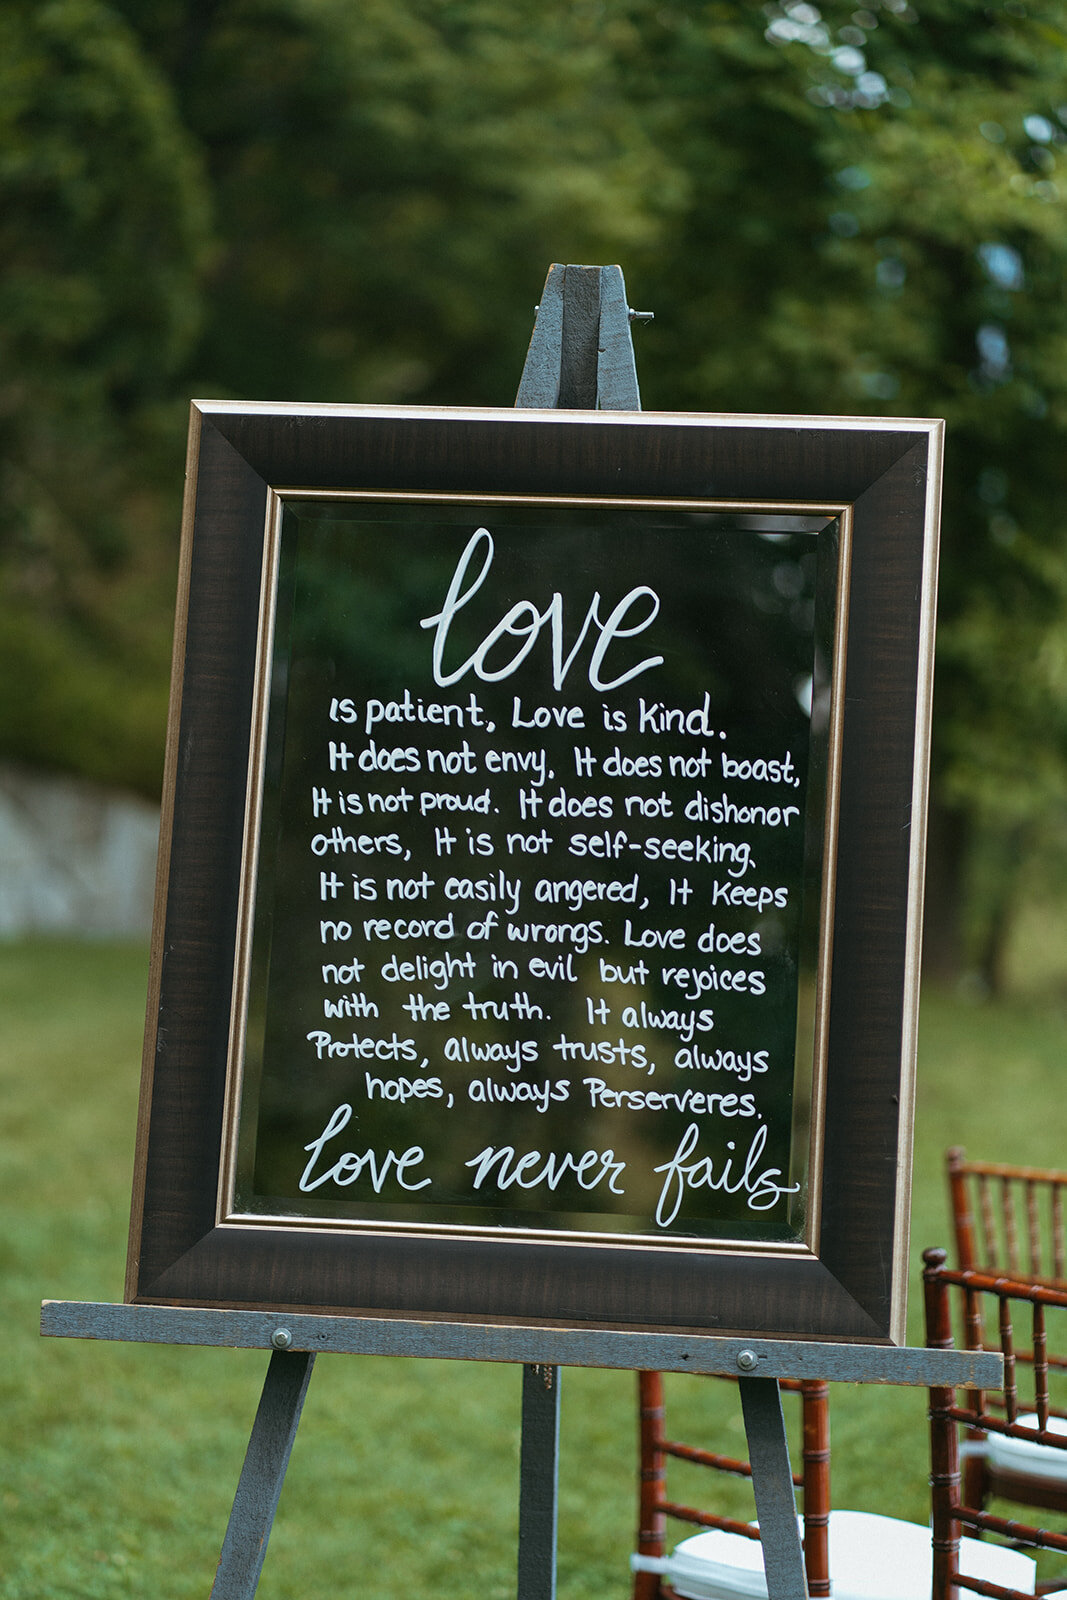 love
is patient, Love is kind.
It does not envy. It does not boast,
It is not proud. It does not dishonor
others, It is not self-seeking.
It is not easily angered, It keeps
no record of wrongs. Love does
not delight in evil but rejoices
with the truth. It always
Protects, always trusts, always
hopes, always Perserveres.
love never fails